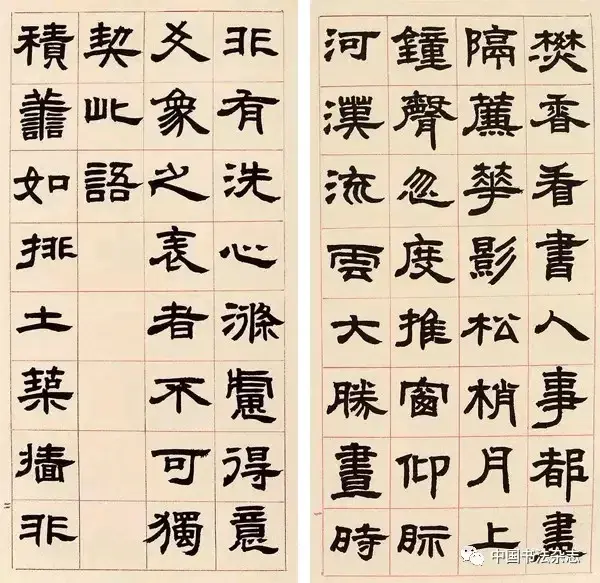 焚香看書人事都盡
隔薕華影松梢月上
鐘聲忽度推窗仰眎
河漢流雲大勝晝時
非有洗心滌慮得意
爻象之表者不可獨
契此語
積善如排土築牆非
中国书法杂志